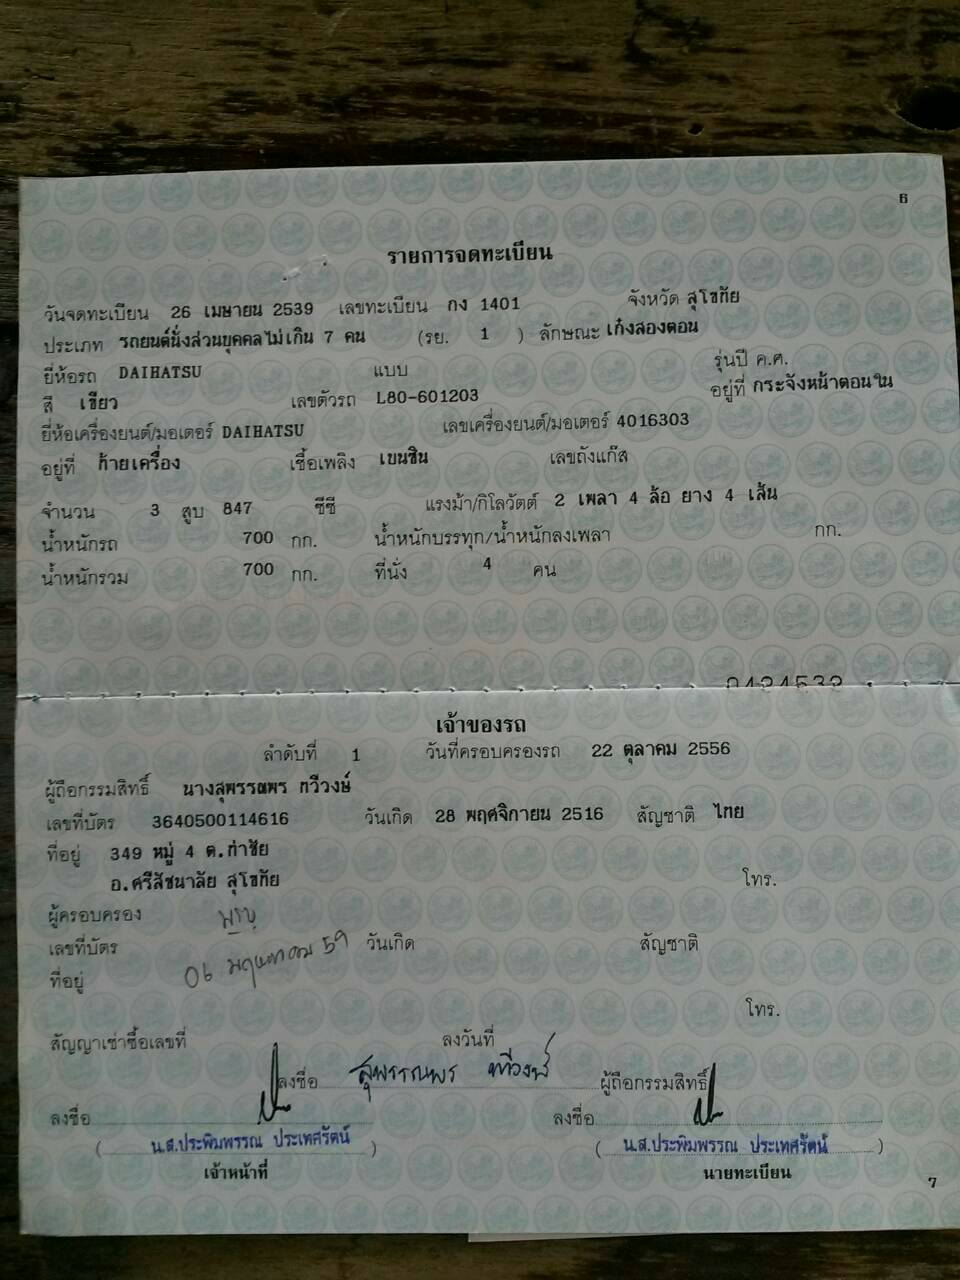 6
รายการจดทะเบียน
วันจดทะเบียน 26 เมษายน 2539 เลขทะเบียน กง 1401 จังหวัด สุโขทัย
ประเภท รถยนต์นั่งส่วนบุคคลไม่เกิน 7 คน (รย. 1 ) ลักษณะ เก๋งสองตอน
ยี่ห้อรถ DAIHATSU แบบ รุ่นปี ค.ศ.
สี เขียว เลขตัวรถ L80-601203 อยู่ที่ กระจังหน้าตอนใน
ยี่ห้อเครื่องยนต์/มอเตอร์ DAIHATSU เลขเครื่องยนต์/มอเตอร์ 4016303
อยู่ที่ ท้ายเครื่อง เชื้อเพลิง เบนซิน เลขถังแก๊ส
จำนวน 3 สูบ 847 ซีซี แรงม้า/กิโลวัตต์ 2 เพลา 4 ล้อ ยาง 4 เส้น
น้ำหนักรถ 700 กก. น้ำหนักบรรทุก/น้ำหนักลงเพลา กก.
น้ำหนักรวม 700 กก. ที่นั่ง 4 คน
เจ้าของรถ
ลำดับที่ 1 วันที่ครอบครองรถ 22 ตุลาคม 2556
ผู้ถือกรรมสิทธิ์ นางสุพรรณพร ทวีวงษ์
เลขที่บัตร 3640500114616 วันเกิด 28 พฤศจิกายน 2516 สัญชาติ ไทย
ที่อยู่ 349 หมู่ 4 ต.ท่าชัย
อ.ศรีสัชนาลัย สุโขทัย โทร.
ผู้ครอบครอง
เลขที่บัตร วันเกิด สัญชาติ
ที่อยู่ 06 พฤษภาคม 59
โทร.
สัญญาเช่าซื้อเลขที่ ลงวันที่
ลงชื่อ สุพรรณพร ทวีวงษ์ ผู้ถือกรรมสิทธิ์
ลงชื่อ ลงชื่อ
( น.ส.ประพิมพรรณ ประเทศรัตน์ ) ( น.ส.ประพิมพรรณ ประเทศรัตน์ )
เจ้าหน้าที่ นายทะเบียน
7